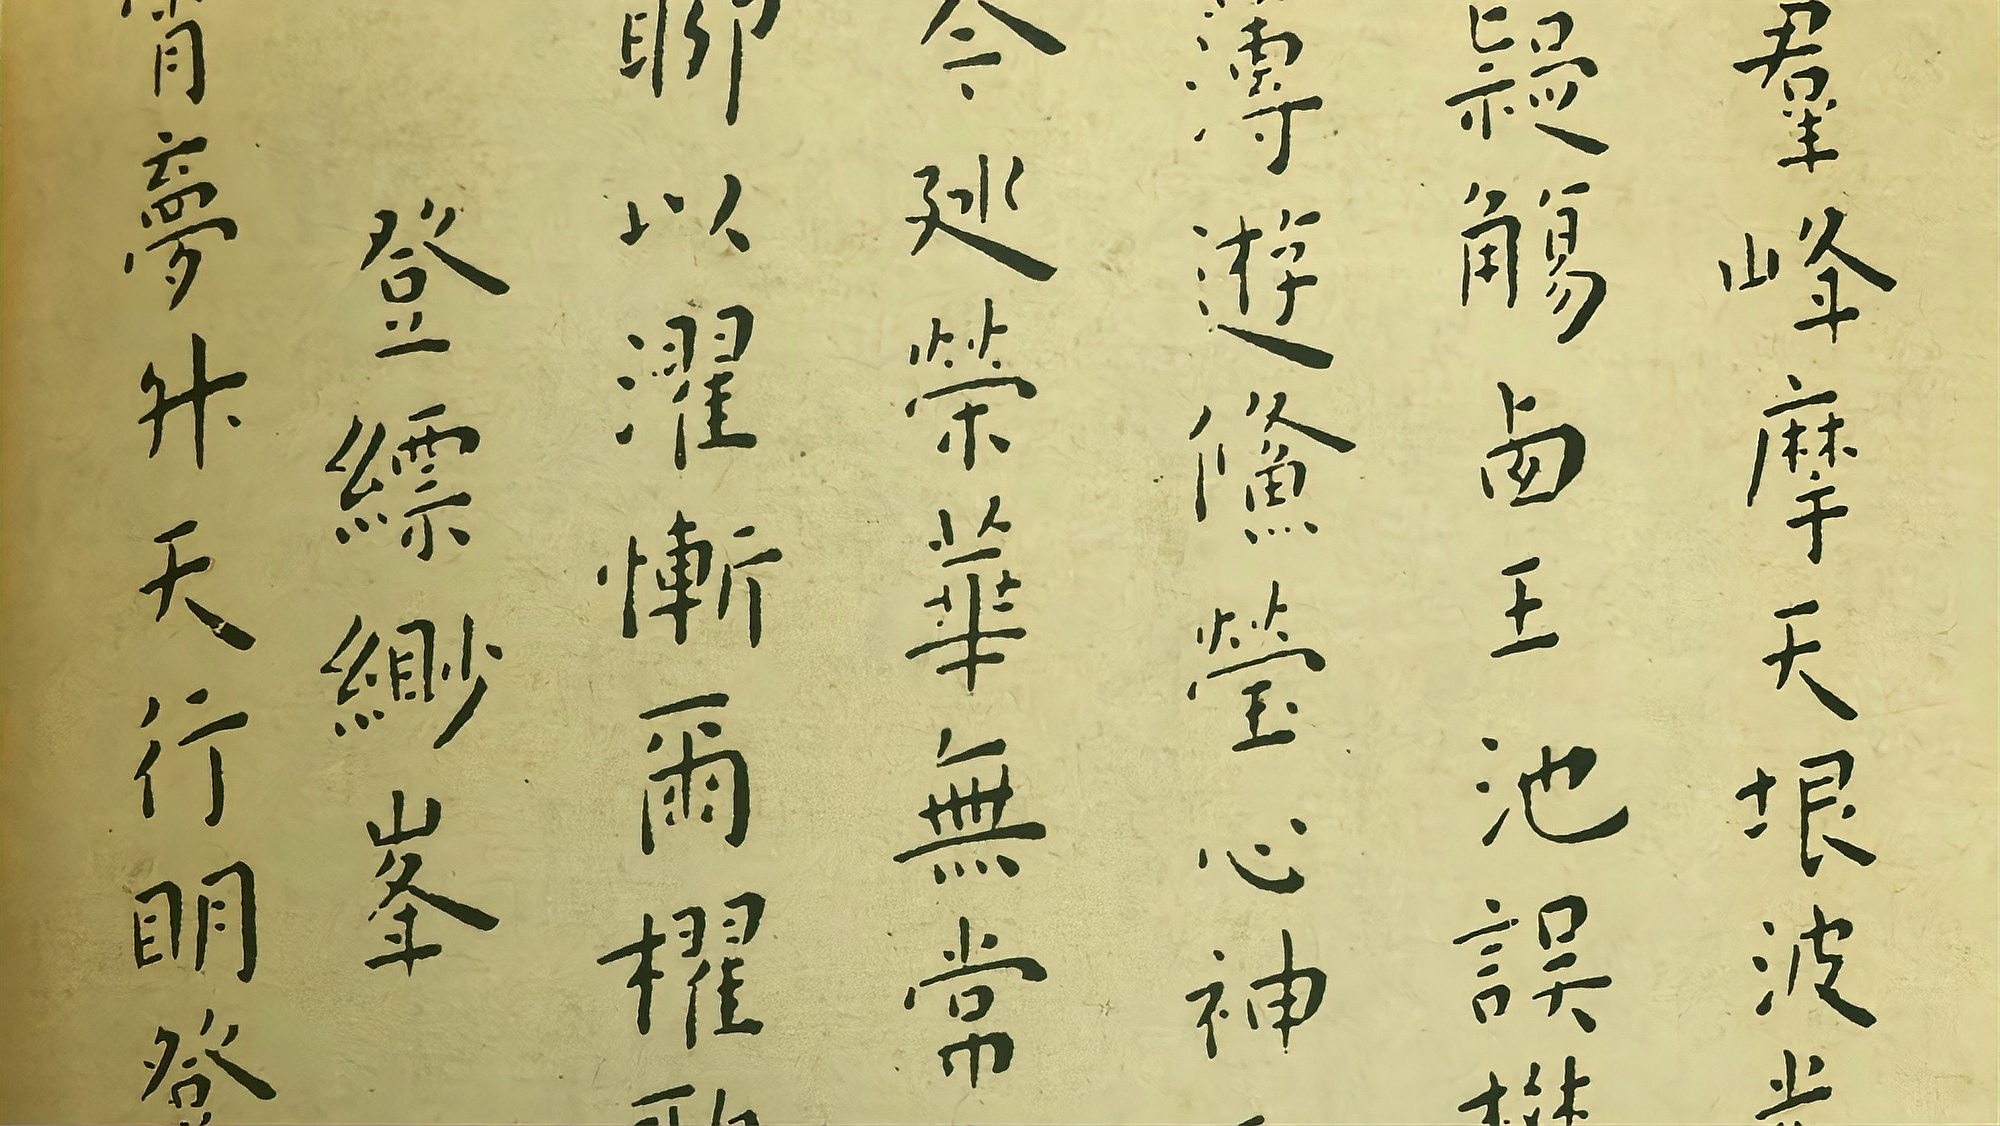 羣峰摩天垠波
觴鹵王池誤
薄遊鯈瑩心神
令廷榮華無常
聊以濯慚爾櫂
登縹緲峯
宵夢升天行明發